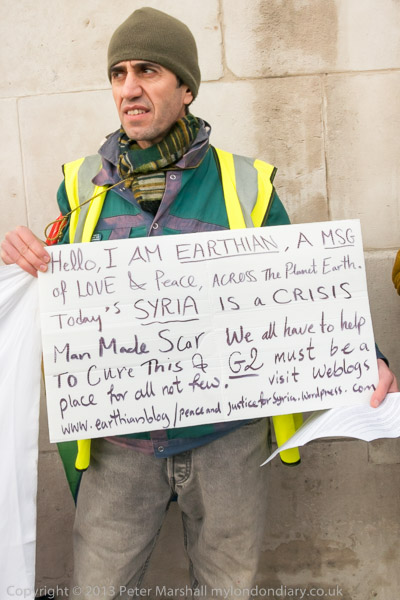 Hello, I AM EARTHIAN, A MSG
of LOVE & Peace, ACROSS The Planet Earth.
Today's SYRIA IS a CRISIS
Man Made Scar We all have to help
To Cure This & G2 must be a
place for all not few. visit weblogs
www.earthianblog/peaceandjusticeforSyria.wordpress.com
Copyright © 2013 Peter Marshall mylondondiary.co.uk